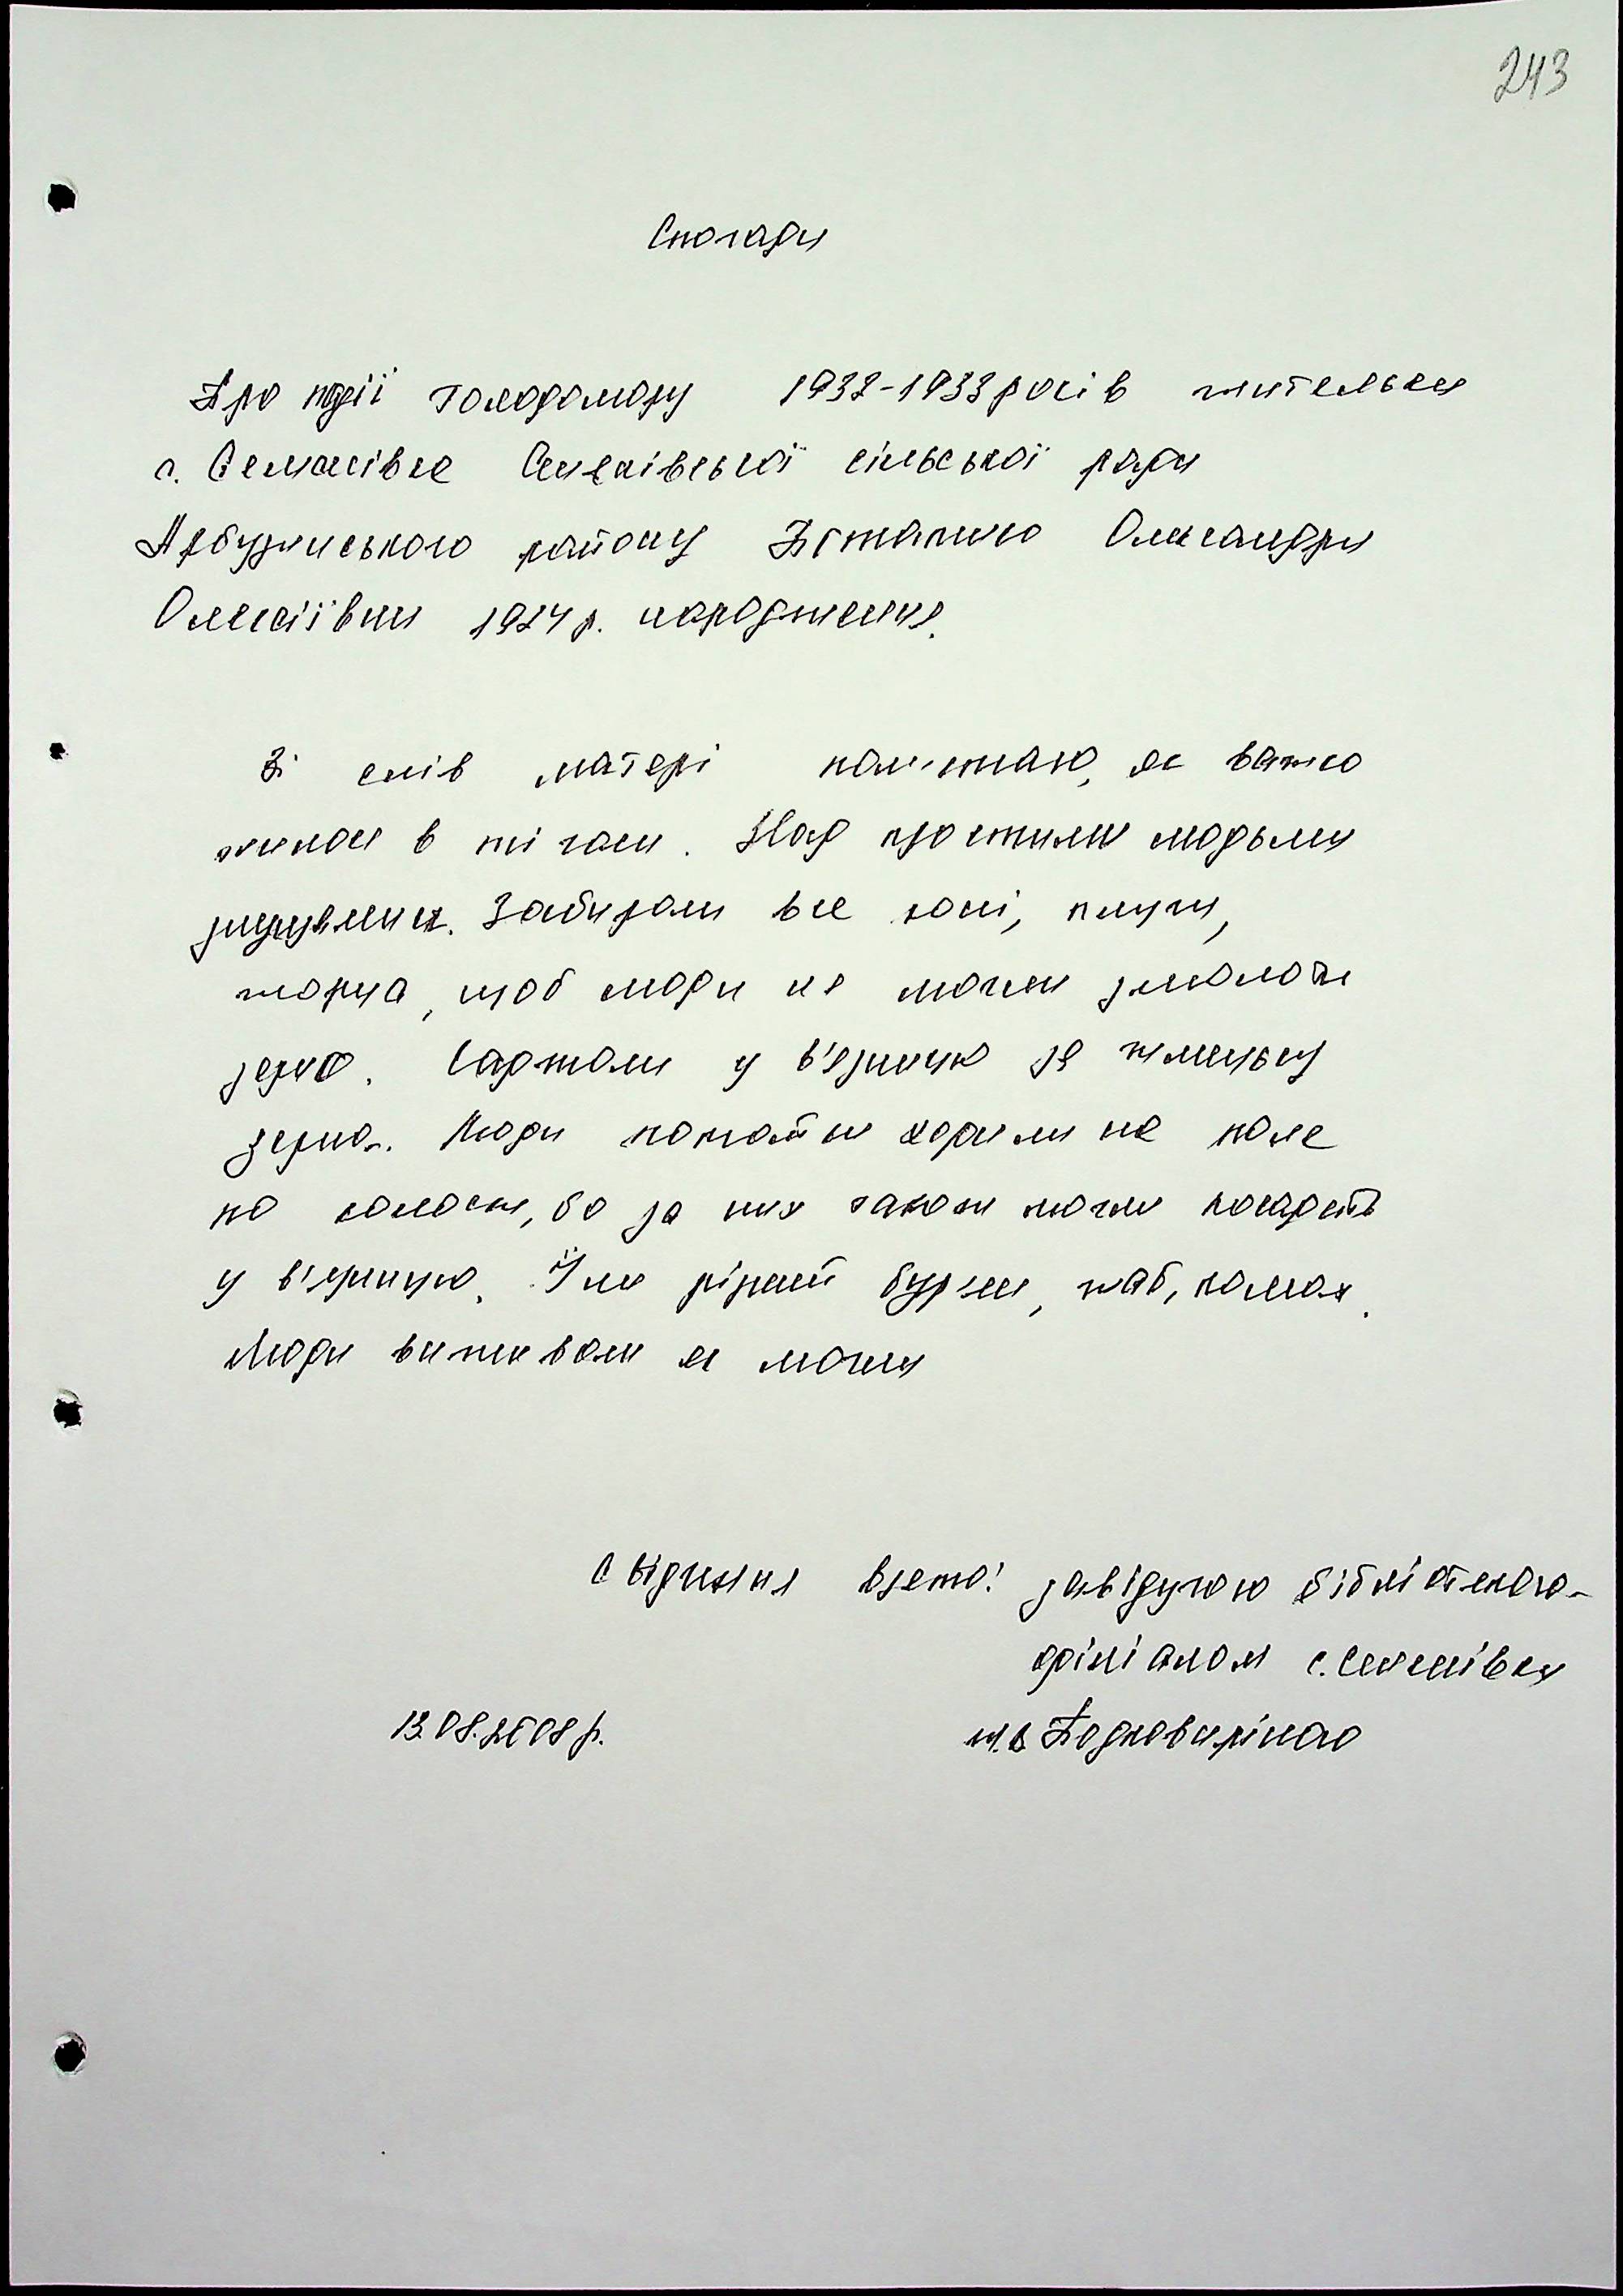 243
Спогади
Про події голодомору 1932-1933 років жительки
с. Семенівка Семенівської сільської ради
Арбузинського району Олександри
Олексіївни 1924 р. народження.
Зі слів матері пам'ятаю, як важко
жилося в ті часи. Над простими людьми
знущалися. Забирали все коні, плуги,
жорна, щоб люди не могли змолоти
зерно. Саджали у в'язницю за жменьку
зерна. Люди потайки ходили на поле
по колоски, бо за них також могли посадить
у в'язницю. Їли різний бур'ян, жаб,
Люди виживали як могли
Свідчення взято: завідуючою бібліотекою-
філіалом с. Семенівка
13.08.2008 р.